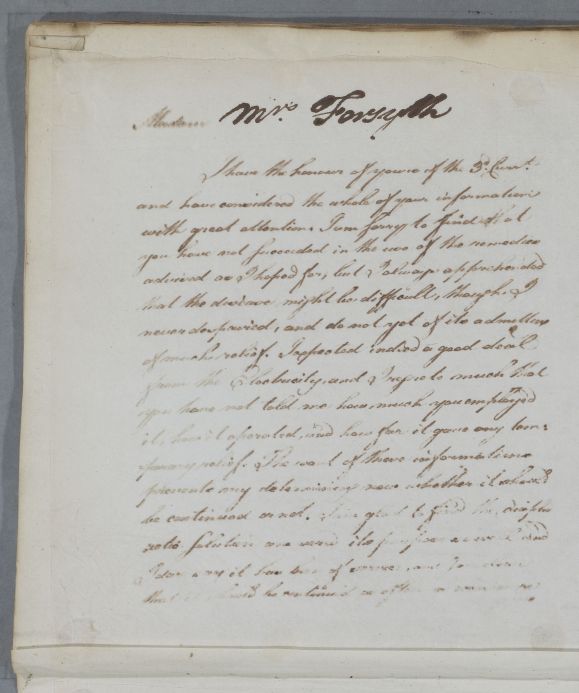 Madam Mrs Forsyth
I have the honour of yours of the 3d. Curr.t
and have considered the whole of your information
with great attention. I am sorry to find that
you have not succeeded in the use of the remedies
advised as I hoped for, but I always apprehended
that the disease might be difficult, though I
never despaired, and do not yet of its admitting
of much relief. I expected indeed a good deal
from the Electricity, and I regrete much that
you have not told me how much you employed
it, how it operated, and how far it gave any tem:
porary relief. The want of these informations
prevents my determining now whether it should
be continued or not. I am glad to find the
Solution its purpose so well and
it has been of service, and
that it should be continued as often as